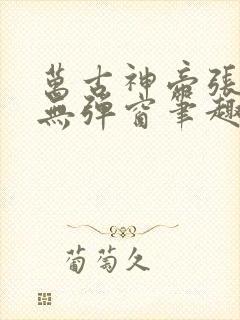 萬古神帝張
無彈窗筆趣
葡萄久